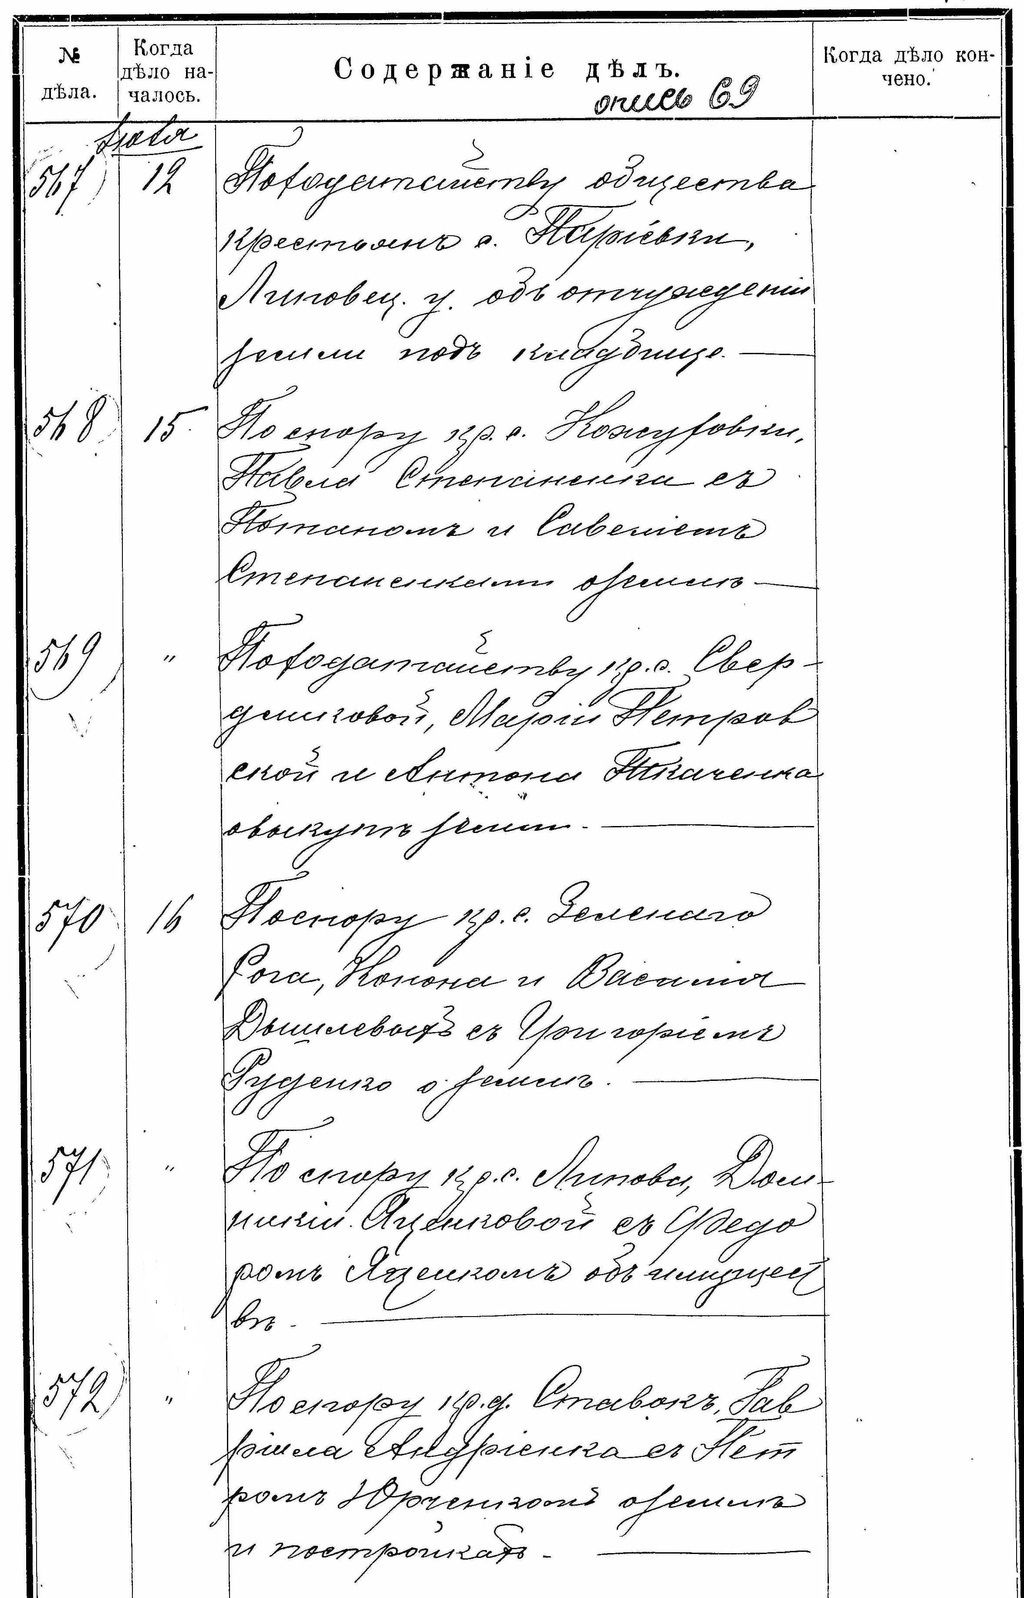 № дѣла.
Когда дѣло на-
чалось.
Содержаніе дѣлъ.
Когда дѣло кон-
чено.
опись 69
567 12 По ходатайству общества
крестьянъ с. Паріевки,
Липовец. у. объ отчужденіи
земли подъ кладбище.
568 15 По спору кр. с. Кожуховки,
Павла Степаненка съ
Потапомъ и Савеліемъ
Степаненками о землѣ
569 " По ходатайству кр. с. Свер-
дликовой, Маріи Петров
ской и Антона Ткаченка
о выкупѣ земли.
570 16 По спору кр. с. Зеленаго
Рога, Конона и Василія
Дышлевыхъ съ Григоріемъ
Руденко о землѣ.
571 " По спору кр. с. Дом-
никіи Яценковой съ Федо
ромъ Яценкомъ объ имущест
вѣ.
572 " По спору кр. д. Ставокъ, Гав
ріила Андріенка съ Пет
ромъ Юрченкомъ о землѣ
и постройкахъ.